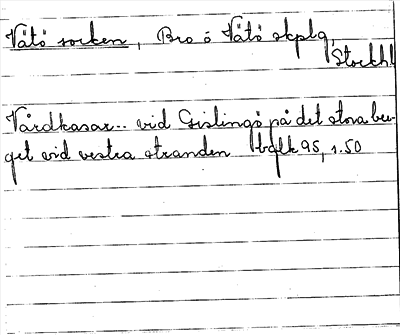 Vätö socken, Bro o Vätö skplg,
Stockhl
Vårdkasar.. vid Gislingö på det stora ber-
get vid vestra stranden tblk 95, 1.50